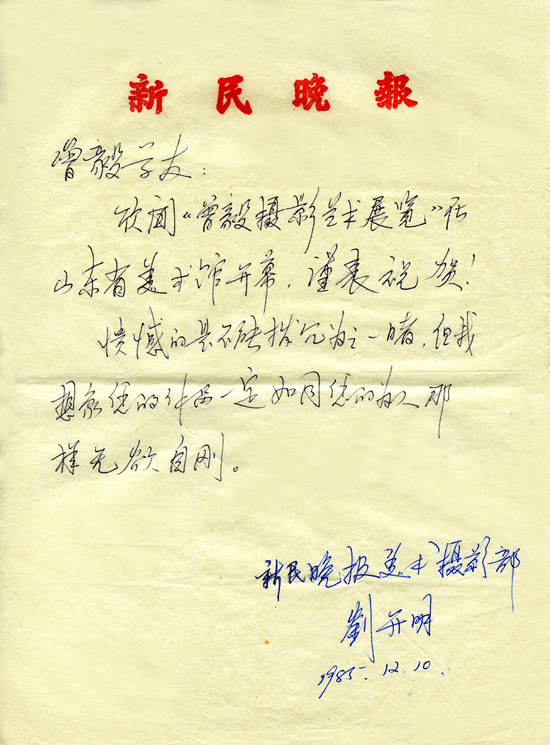 新民晚報
曾毅学友：
欣闻《曾毅摄影艺术展览》在
山东省美术馆开幕，谨表祝贺！
愤憾的是不能拨冗为之一睹，但我
想象您的作品一定如同您的为人那
样无欲自刚。
新民晚报美术摄影部
劉开明
1985.12.10.